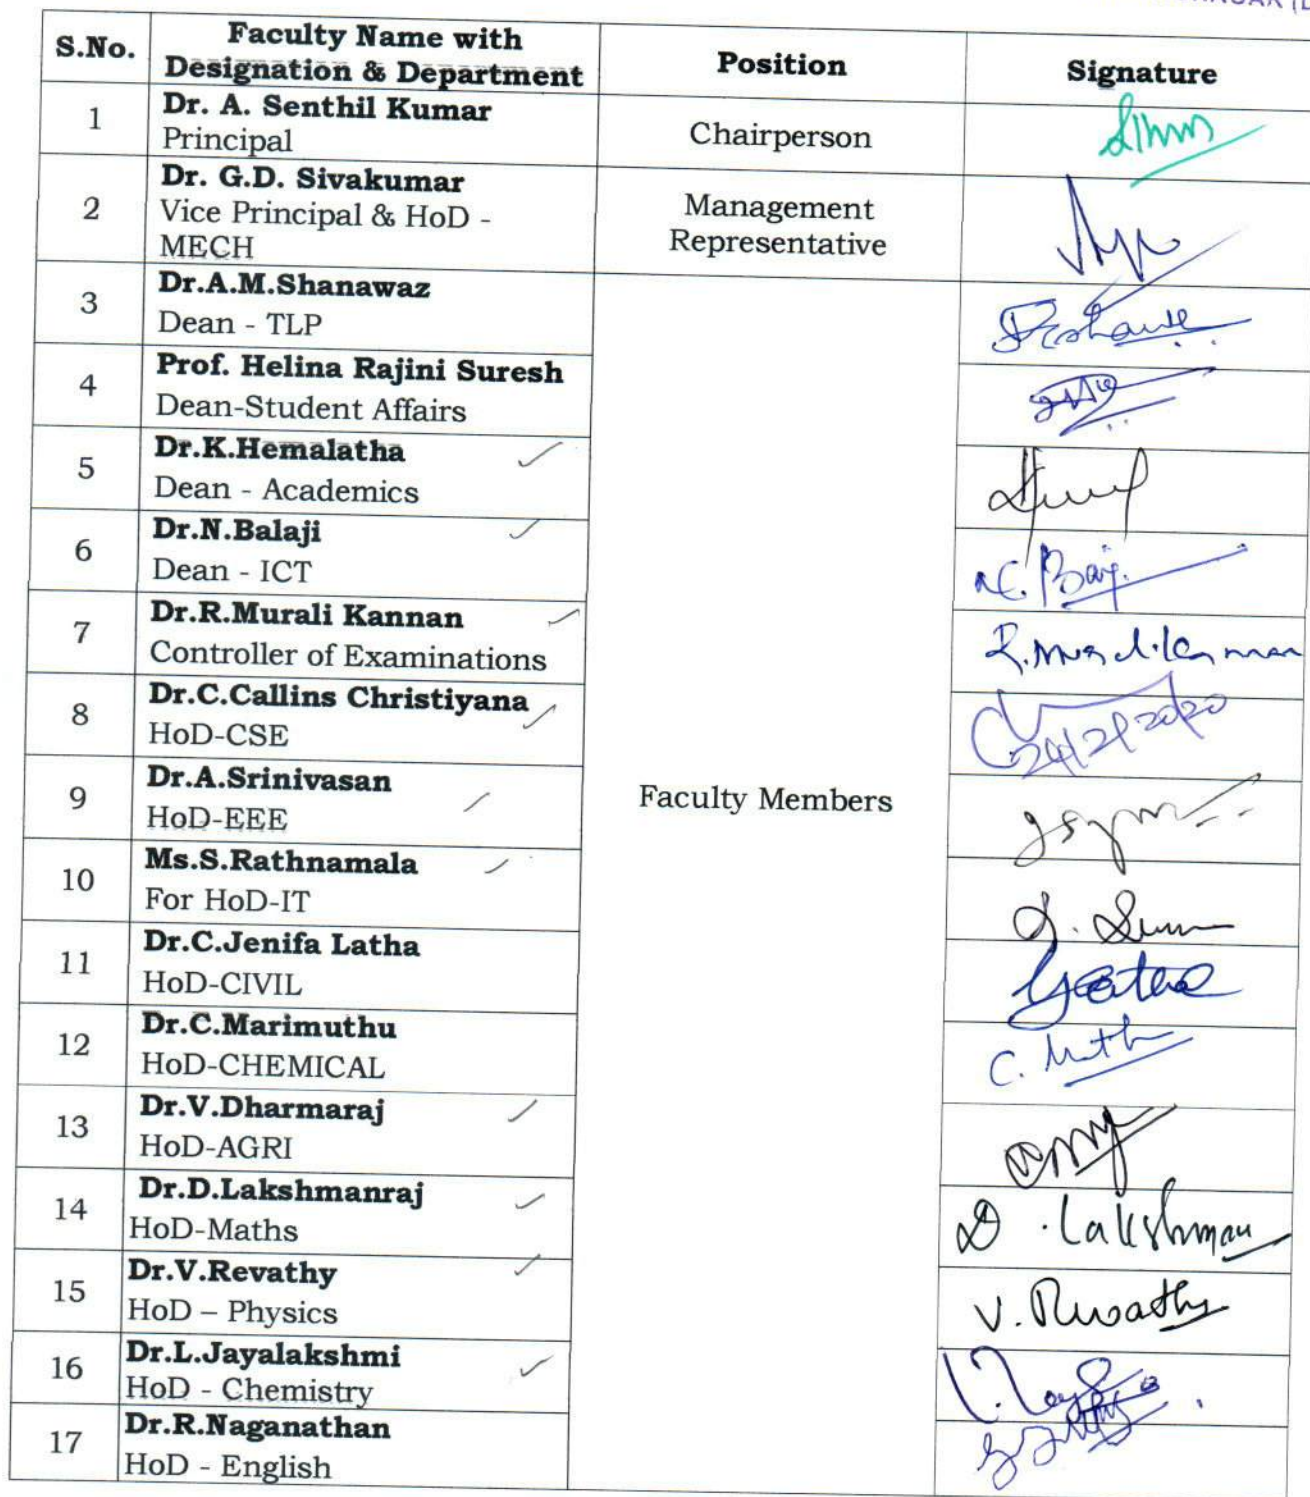 S.No.
Faculty Name with
Designation & Department
Position
Signature
1
Dr. A. Senthil Kumar
Principal
Chairperson
2
Dr. G.D. Sivakumar
Vice Principal & HoD -
MECH
Management
Representative
3
Dr.A.M.Shanawaz
Dean - TLP
4
Prof. Helina Rajini Suresh
Dean-Student Affairs
5
Dr.K.Hemalatha
Dean - Academics
6
Dr.N.Balaji
Dean - ICT
7
Dr.R.Murali Kannan
Controller of Examinations
8
Dr.C.Callins Christiyana
HoD-CSE
24/2/2020
9
Dr.A.Srinivasan
HoD-EEE
Faculty Members
10
Ms.S.Rathnamala
For HoD-IT
11
Dr.C.Jenifa Latha
HoD-CIVIL
12
Dr.C.Marimuthu
HoD-CHEMICAL
13
Dr.V.Dharmaraj
HoD-AGRI
14
Dr.D.Lakshmanraj
HoD-Maths
D. Lakshman
15
Dr.V.Revathy
HoD – Physics
V. Revathy
16
Dr.L.Jayalakshmi
HoD - Chemistry
17
Dr.R.Naganathan
HoD - English